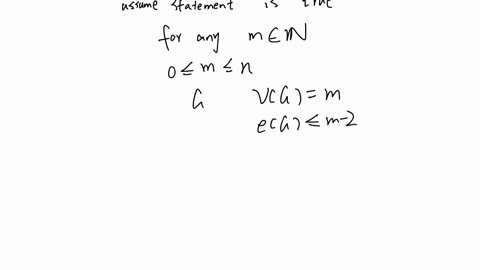 assume statement is true
for any m ∈ ℕ
0 ≤ m ≤ n
G V(G) = m
e(G) ≤ m-2